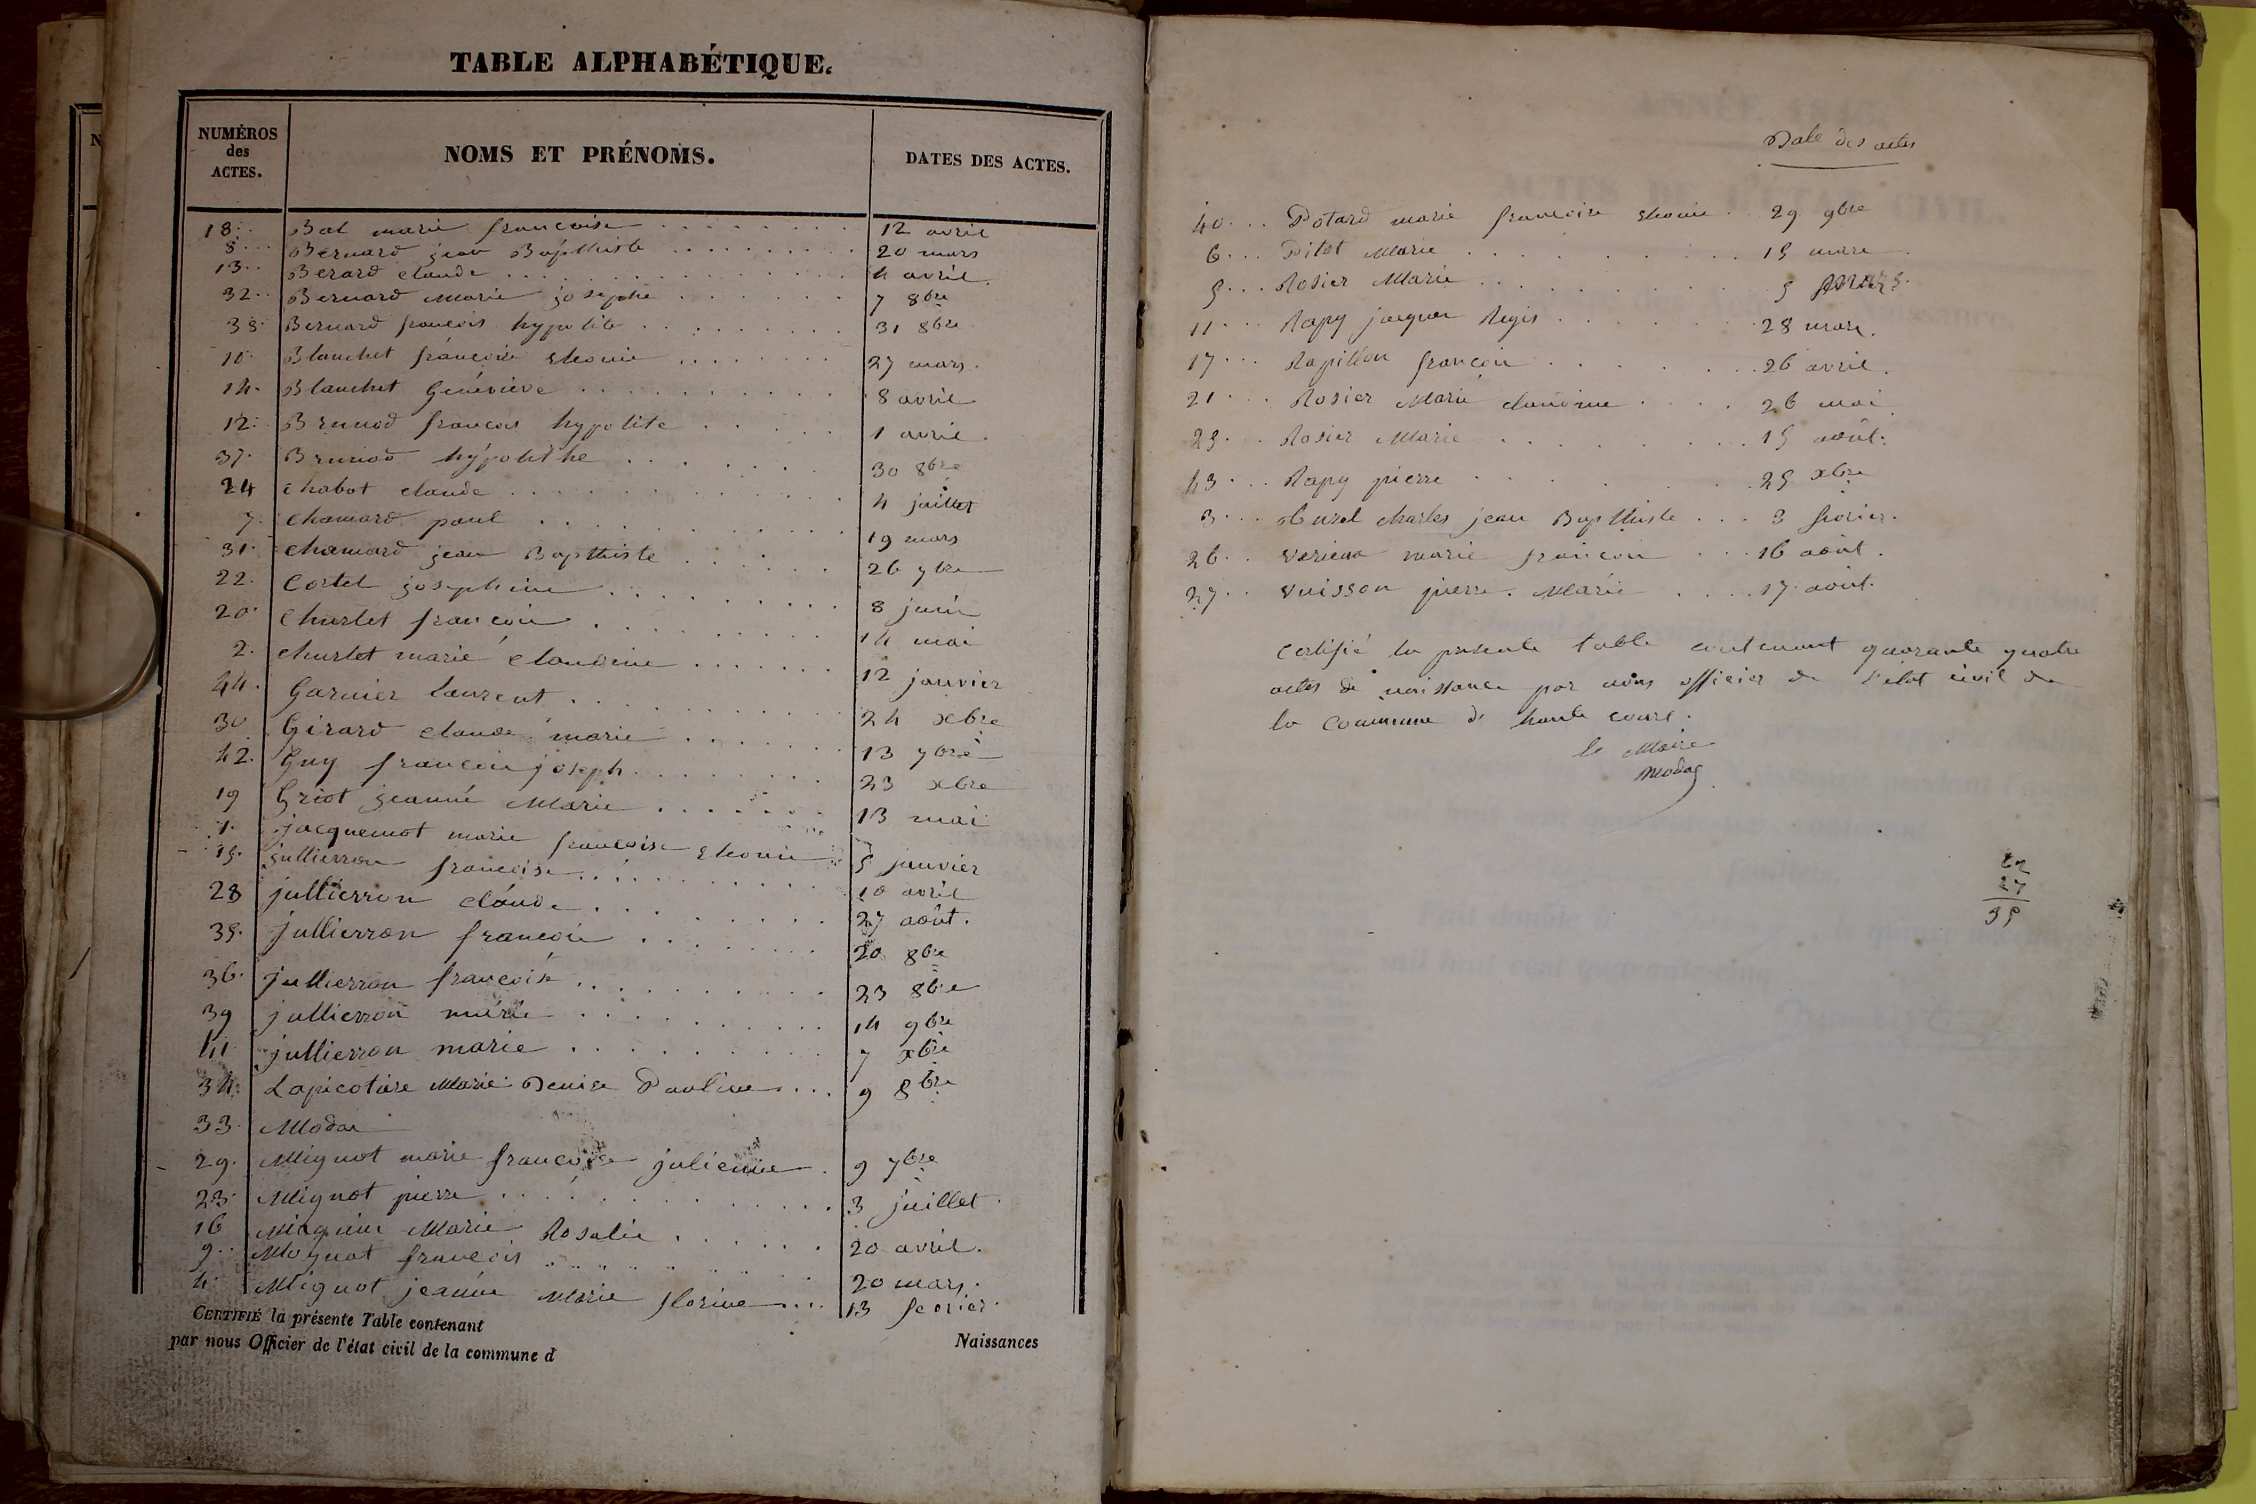 TABLE ALPHABÉTIQUE.
NUMÉROS des ACTES. NOMS ET PRÉNOMS. DATES DES ACTES.
18 Bal marie françoise 12 avril
8 Bernard jean Bapthiste 20 mars
13 Berard claude 4 avril
32 Bernard Marie josephe 7 8bre
38 Bernard francois hypolite 31 8bre
10 Blanchet françoise 27 mars
14 Blanchet Geneviève 8 avril
12 Brunod francois hypolite 1 avril
37 Brunod hypolithe 30 8bre
24 Chabot claude 4 juillet
7 Chamard paul 19 mars
31 Chamard jean Bapthiste 26 7bre
22 Cortel josephine 8 juin
20 Churlet francois 14 mai
2 Churlet marie Claudine 12 janvier
44 Garnier laurent 24 xbre
30 Girard claude marie 13 7bre
42 Guy francois joseph 23 xbre
19 Griot jeanne Marie 13 mai
1 jacquemot marie françoise 5 janvier
15 jullierron françoise 10 avril
28 jullierron claude 27 août
35 jullierron francois 20 8bre
36 jullierron françoise 23 8bre
39 jullierron marie 14 9bre
41 jullierron marie 7 xbre
34 Lapicotire Marie Denise Pauline 9 8bre
33 Modar
29 Mignot marie françoise julienne 9 7bre
23 Mignot pierre 3 juillet
16 Marie Rosalie 20 avril
9 Mognat francois 20 mars
4 Mignot jeanne Marie florine 13 fevrier
CERTIFIÉ la présente Table contenant Naissances
par nous Officier de l'état civil de la commune d
Date des actes
40 Potard marie françoise 29 9bre
6 Pitot Marie 15 mars
5 Rosier Marie 5 mars
11 Rapy jacques Regis 28 mars
17 Rapillon francois 26 avril
21 Rosier Marie claudine 26 mai
25 Rosier Marie 15 août
43 Rapy pierre 25 xbre
3 charles jean Bapthiste 3 fevrier
26 marie françoise 16 août
27 Vuisson pierre Marie 17 août
Certifié la présente table contenant quarante quatre
actes de naissance par nous officier de l'état civil de
la Commune de haute cour.
le Maire
Modar
22
27
39